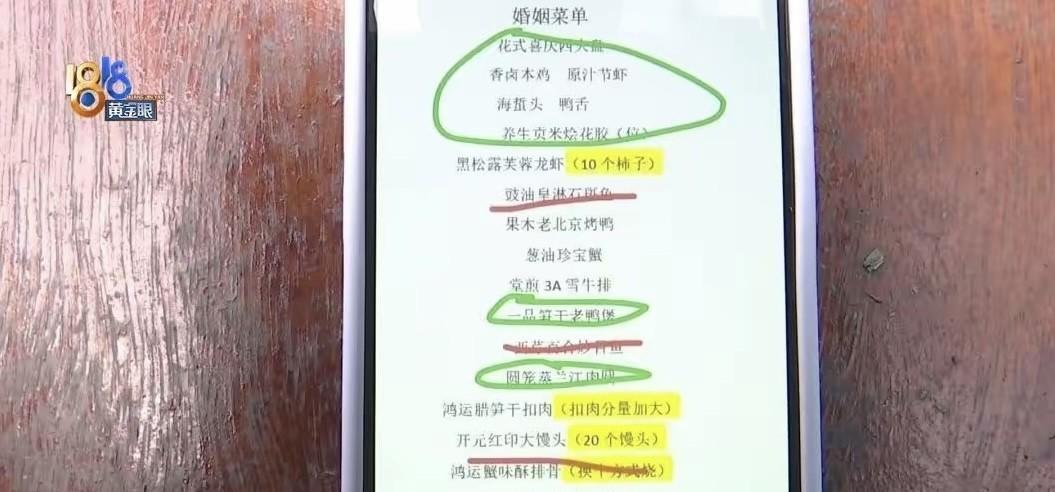 1818
黄金眼
婚姻菜单
花式喜庆四大盘
香卤本鸡 原汁节虾
海蜇头 鸭舌
养生贡米烩花胶（位）
黑松露芙蓉龙虾（10 个柿子）
豉油皇淋石斑鱼
果木老北京烤鸭
葱油珍宝蟹
堂煎 3A 雪牛排
一品笋干老鸭煲
西芹百合炒
圆笼蒸兰江肉圆
鸿运腊笋干扣肉（扣肉分量加大）
开元红印大馒头（20 个馒头）
鸿运蟹味酥排骨（换十方式烧）